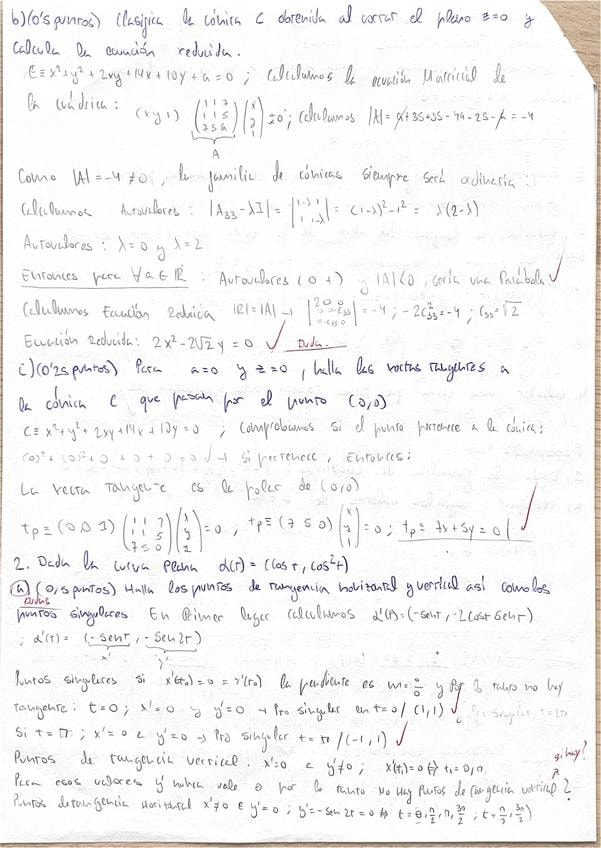 b)(0'5 puntos) Clasifica la cónica C obtenida al cortar el plano z=0 y
calcula la ecuación reducida.
C≡ x²+y²+2xy+14x+10y+a=0 ; calculamos la ecuación Matricial de
la cuádrica: (x y 1) (1 1 7 / 1 1 5 / 7 5 a) (x / y / 1) = 0 ; calculamos |A|= a+35+35-49-25-a = -4
A
Como |A|=-4≠0, la familia de cónicas siempre será ordinaria:
Calculamos Autovalores: |A33-λI| = |1-λ 1 / 1 1-λ| = (1-λ)²-1² = λ(2-λ)
Autovalores: λ=0 y λ=2
Entonces para ∀a∈R : Autovalores (0 +) y |A|<0, sería una Parábola ✓
Calculamos Ecuación Reducida |R|=|A| → |2 0 0 / 0 0 C33 / 0 C33 0| = -4 ; -2C²33=-4 ; C33=√2
Ecuación Reducida: 2x²-2√2 y = 0 ✓ Dudas.
c)(0'25 puntos) Para a=0 y z=0, halla las rectas tangentes a
la cónica C que pasan por el punto (0,0)
C≡ x²+y²+2xy+14x+10y=0 ; Comprobamos si el punto pertenece a la cónica:
(0)²+(0)²+0+0+0=0 ✓ → si pertenece, Entonces:
La recta tangente es la polar de (0,0)
tp≡ (0 0 1) (1 1 7 / 1 1 5 / 7 5 0) (x / y / 1) = 0 ; tp≡ (7 5 0) (x / y / 1) = 0 ; tp≡ 7x+5y=0 ✓
2. Dada la curva plana α(t) = (cos t, cos² t)
a) (0,5 puntos) Halla los puntos de tangencia horizontal y vertical así como los
Dudas
puntos singulares En Primer lugar calculamos α'(t)=(-sent, -2cost sent)
; α'(t) = (-sent, -sen2t)
x' y'
Puntos singulares si x'(t0)=0=y'(t0) la pendiente es m=0/0 y por lo tanto no hay
tangente: t=0; x'=0 y y'=0 → Pto singular en t=0 / (1,1) ✓
Si t=π; x'=0 e y'=0 → Pto singular t=π / (-1,1) ✓
si hay?
Puntos de tangencia vertical: x'=0 e y'≠0; x'(t1)=0 ⇔ t1=0,π
Para esos valores y' nunca vale ≠ 0 por lo tanto No Hay Puntos de tangencia vertical ?
Puntos de tangencia Horizontal x'≠0 e y'=0 ; y'=-sen2t=0 ⇔ t=0,π/2,π,3π/2 ; t=π/2, 3π/2)